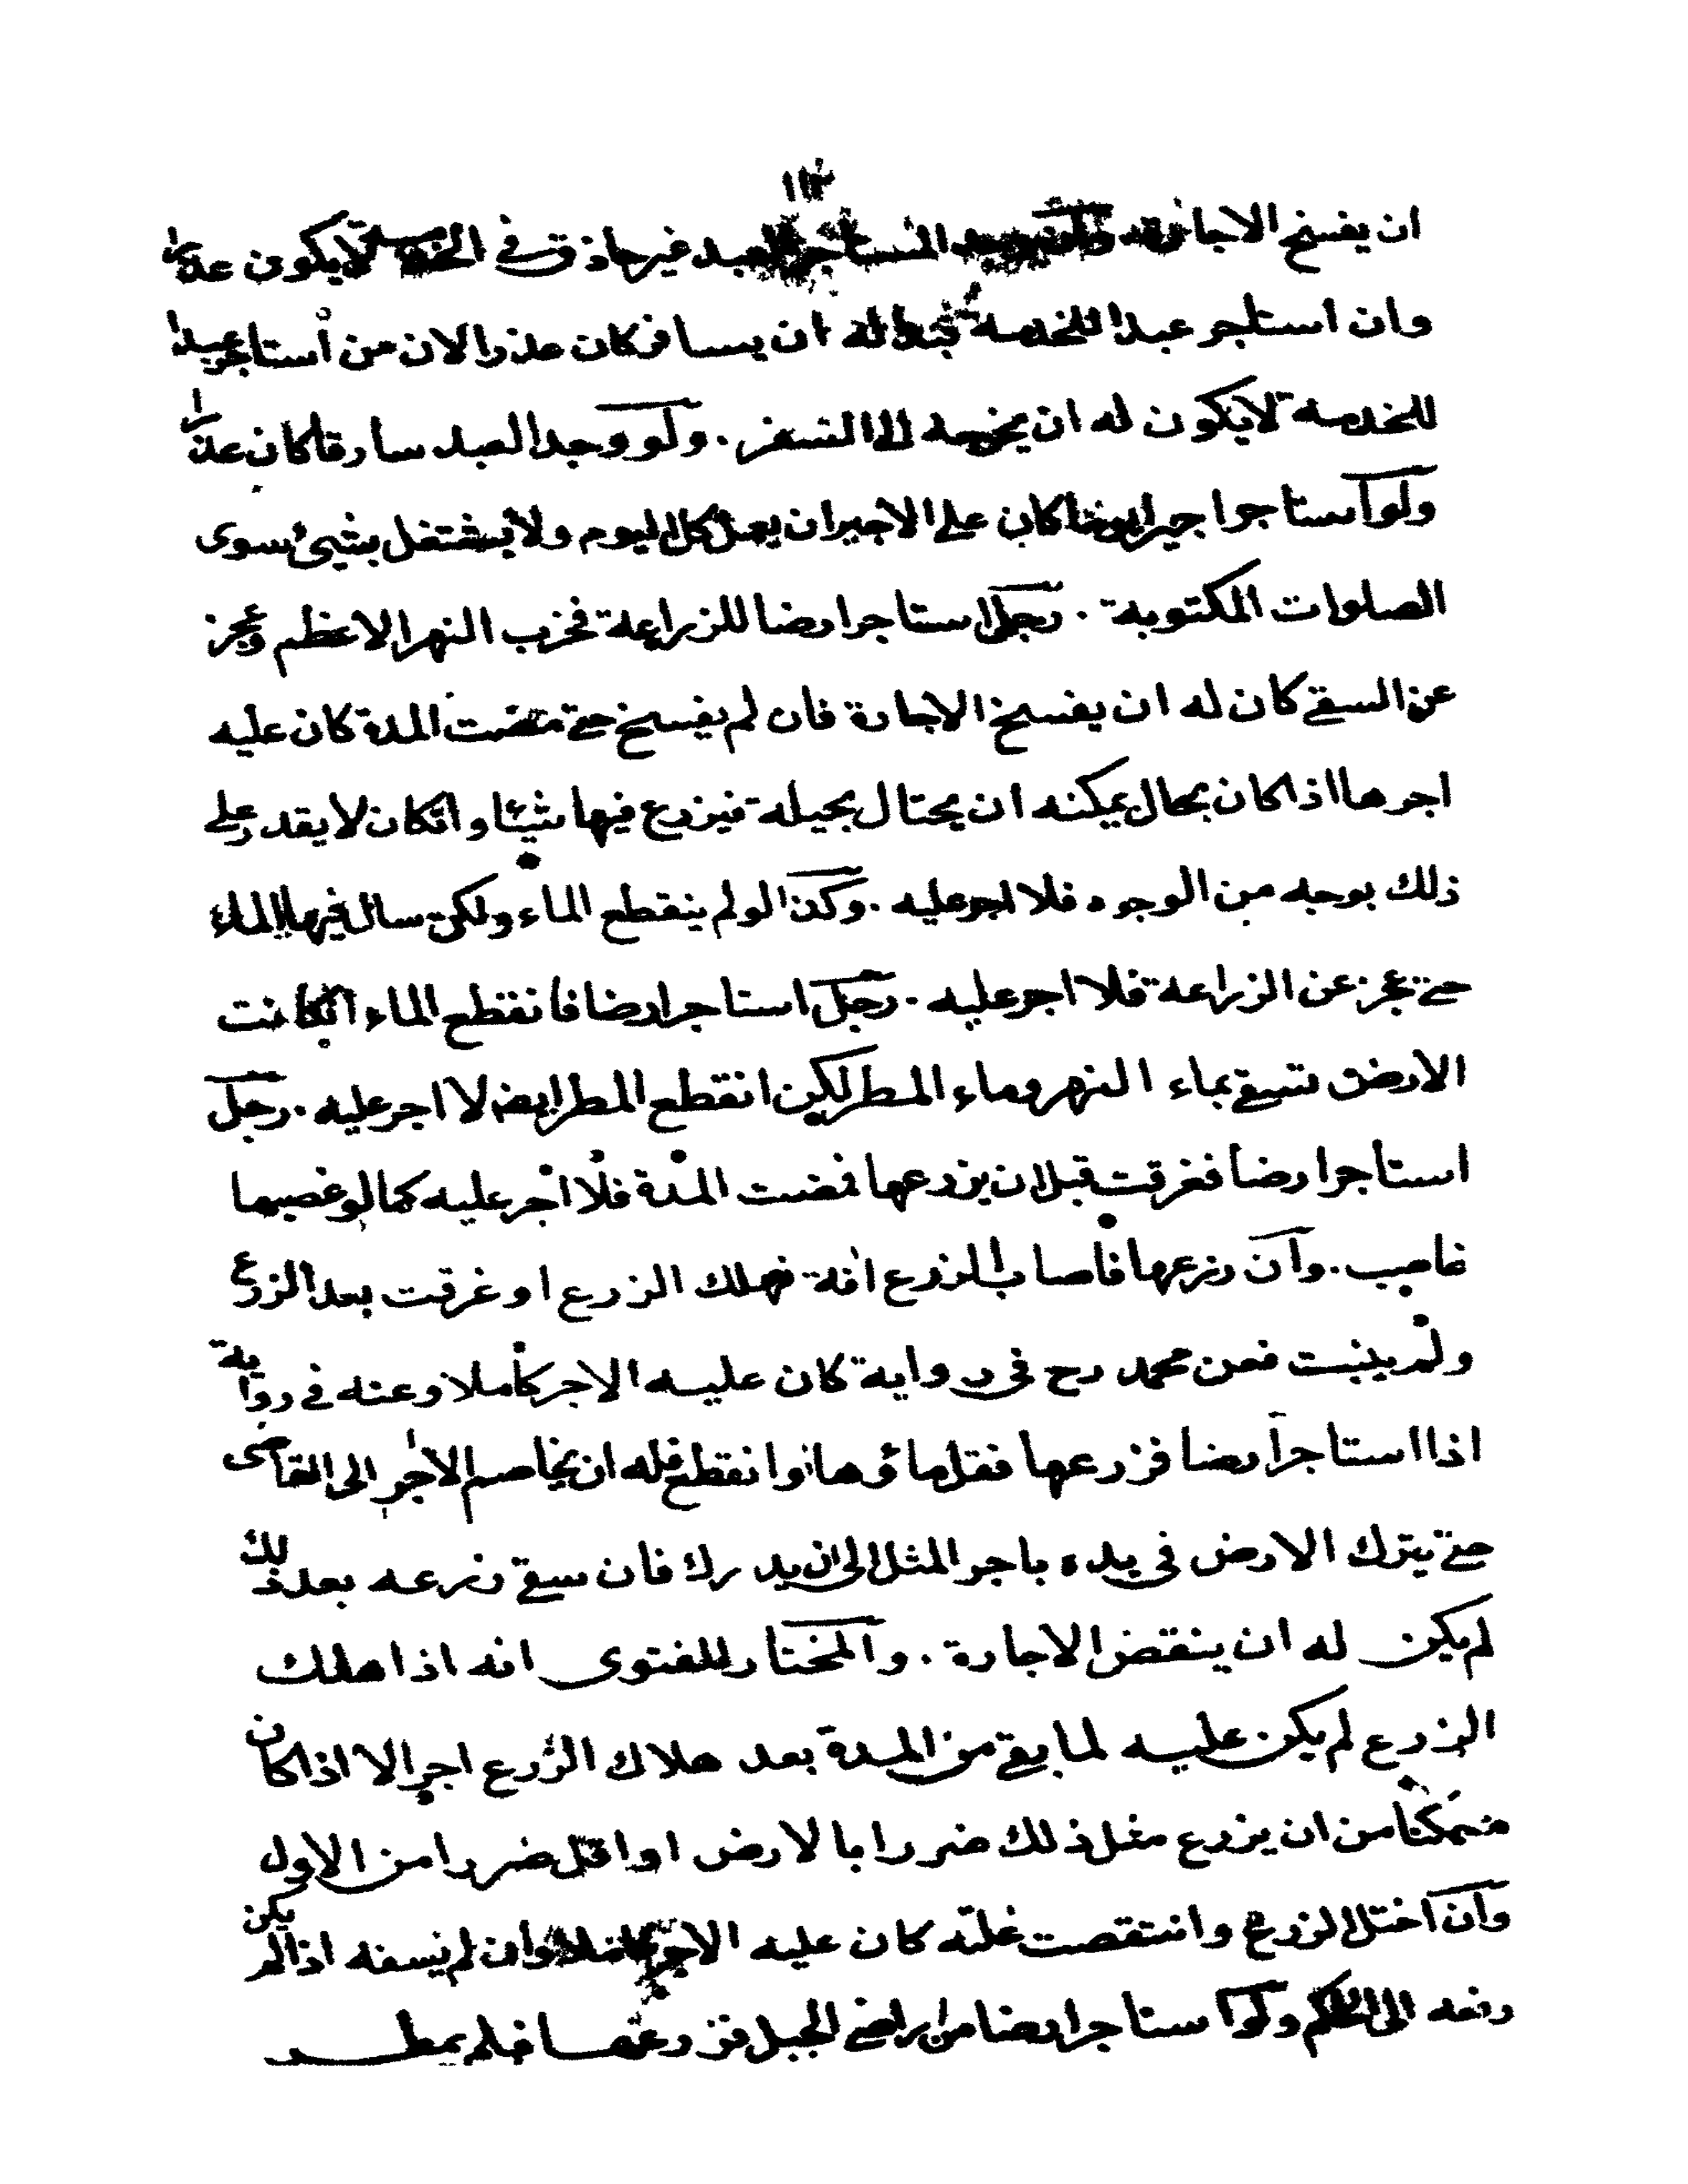 ١١٣
ان يفسخ الاجارة ولو وجد المستاجر العبد غير حاذق في الخدمة لا يكون عذرا
وان استاجر عبدا للخدمة فبدا له ان يسافر كان عذرا لان من استاجر عبدا
للخدمة لا يكون له ان يخرجه الى السفر . ولو وجد العبد سارقا كان عذرا
ولو استاجر اجيرا يوما كان على الاجير ان يعمل كل اليوم ولا يشتغل بشئ سوى
الصلوات المكتوبة . رجل استاجر ارضا للزراعة فخرب النهر الاعظم وعجز
عن السقي كان له ان يفسخ الاجارة فان لم يفسخ حتى مضت المدة كان عليه
اجرها اذا كان بحال يمكنه ان يحتال بحيلة فيزرع فيها شيئا وان كان لا يقدر على
ذلك بوجه من الوجوه فلا اجر عليه . وكذا لو لم ينقطع الماء ولكن سال فيها الماء
حتى عجز عن الزراعة فلا اجر عليه . رجل استاجر ارضا فانقطع الماء ان كانت
الارض تسقى بماء النهر وماء المطر لكن انقطع المطر ايضا لا اجر عليه . رجل
استاجر ارضا فغرقت قبل ان يزرعها فمضت المدة فلا اجر عليه كما لو غصبها
غاصب . وان زرعها فاصاب الزرع افة فهلك الزرع او غرقت بعد الزرع
ولم ينبت فعن محمد رح في رواية كان عليه الاجر كاملا وعنه في رواية
اذا استاجر ارضا فزرعها فقل ماؤها او انقطع فله ان يخاصم الاجر الى القاضى
حتى يترك الارض في يده باجر المثل الى ان يدرك فان سقى زرعه بعد ذلك
لم يكن له ان ينقض الاجارة . والمختار للفتوى انه اذا هلك
الزرع لم يكن عليه لما بقي من المدة بعد هلاك الزرع اجر الا اذا كان
متمكنا من ان يزرع مثل ذلك ضررا با لارض او اقل ضررا من الاول
وان اختل الزرع وانتقصت غلته كان عليه الاجر كاملا وان لم يسقه اذا لم يكن
رفعه الى الحاكم ولو استاجر ارضا من اراضي الجبل فزرعها فلم يمطر